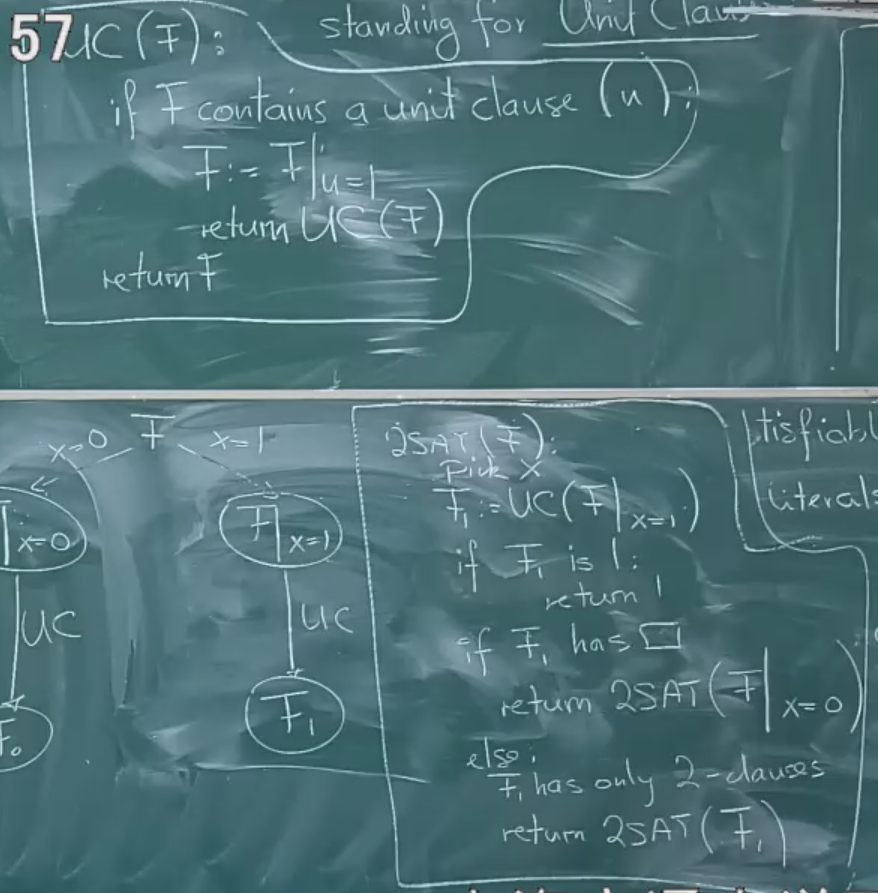 57
UC(F): standing for Unit Claus
if F contains a unit clause (u):
F:= F|u=1
return UC(F)
return F
x=0 F x=1
|x=0
F|x=1
UC
UC
F₀
F₁
2SAT(F):
Pick x
F₁:=UC(F|x=1)
if F₁ is 1:
return 1
if F₁ has □
return 2SAT(F|x=0)
else:
F₁ has only 2-clauses
return 2SAT(F₁)
tisfiabl
literals